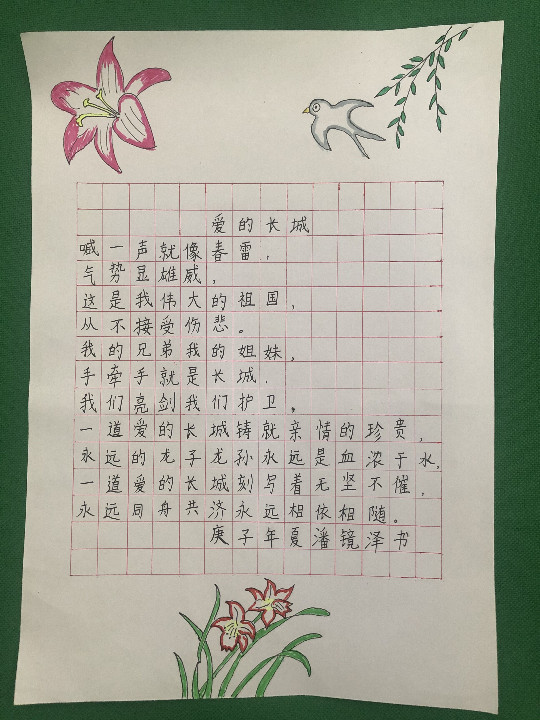 爱的长城
喊一声就像春雷，
气势显雄威，
这是我伟大的祖国，
从不接受伤悲。
我的兄弟我的姐妹，
手牵手就是长城.
我们亮剑我们护卫。
一道爱的长城铸就亲情的珍贵，
永远的龙子龙孙永远是血浓于水，
一道爱的长城刻写着无坚不催，
永远同舟共济永远相依相随。
庚子年夏潘镜泽书